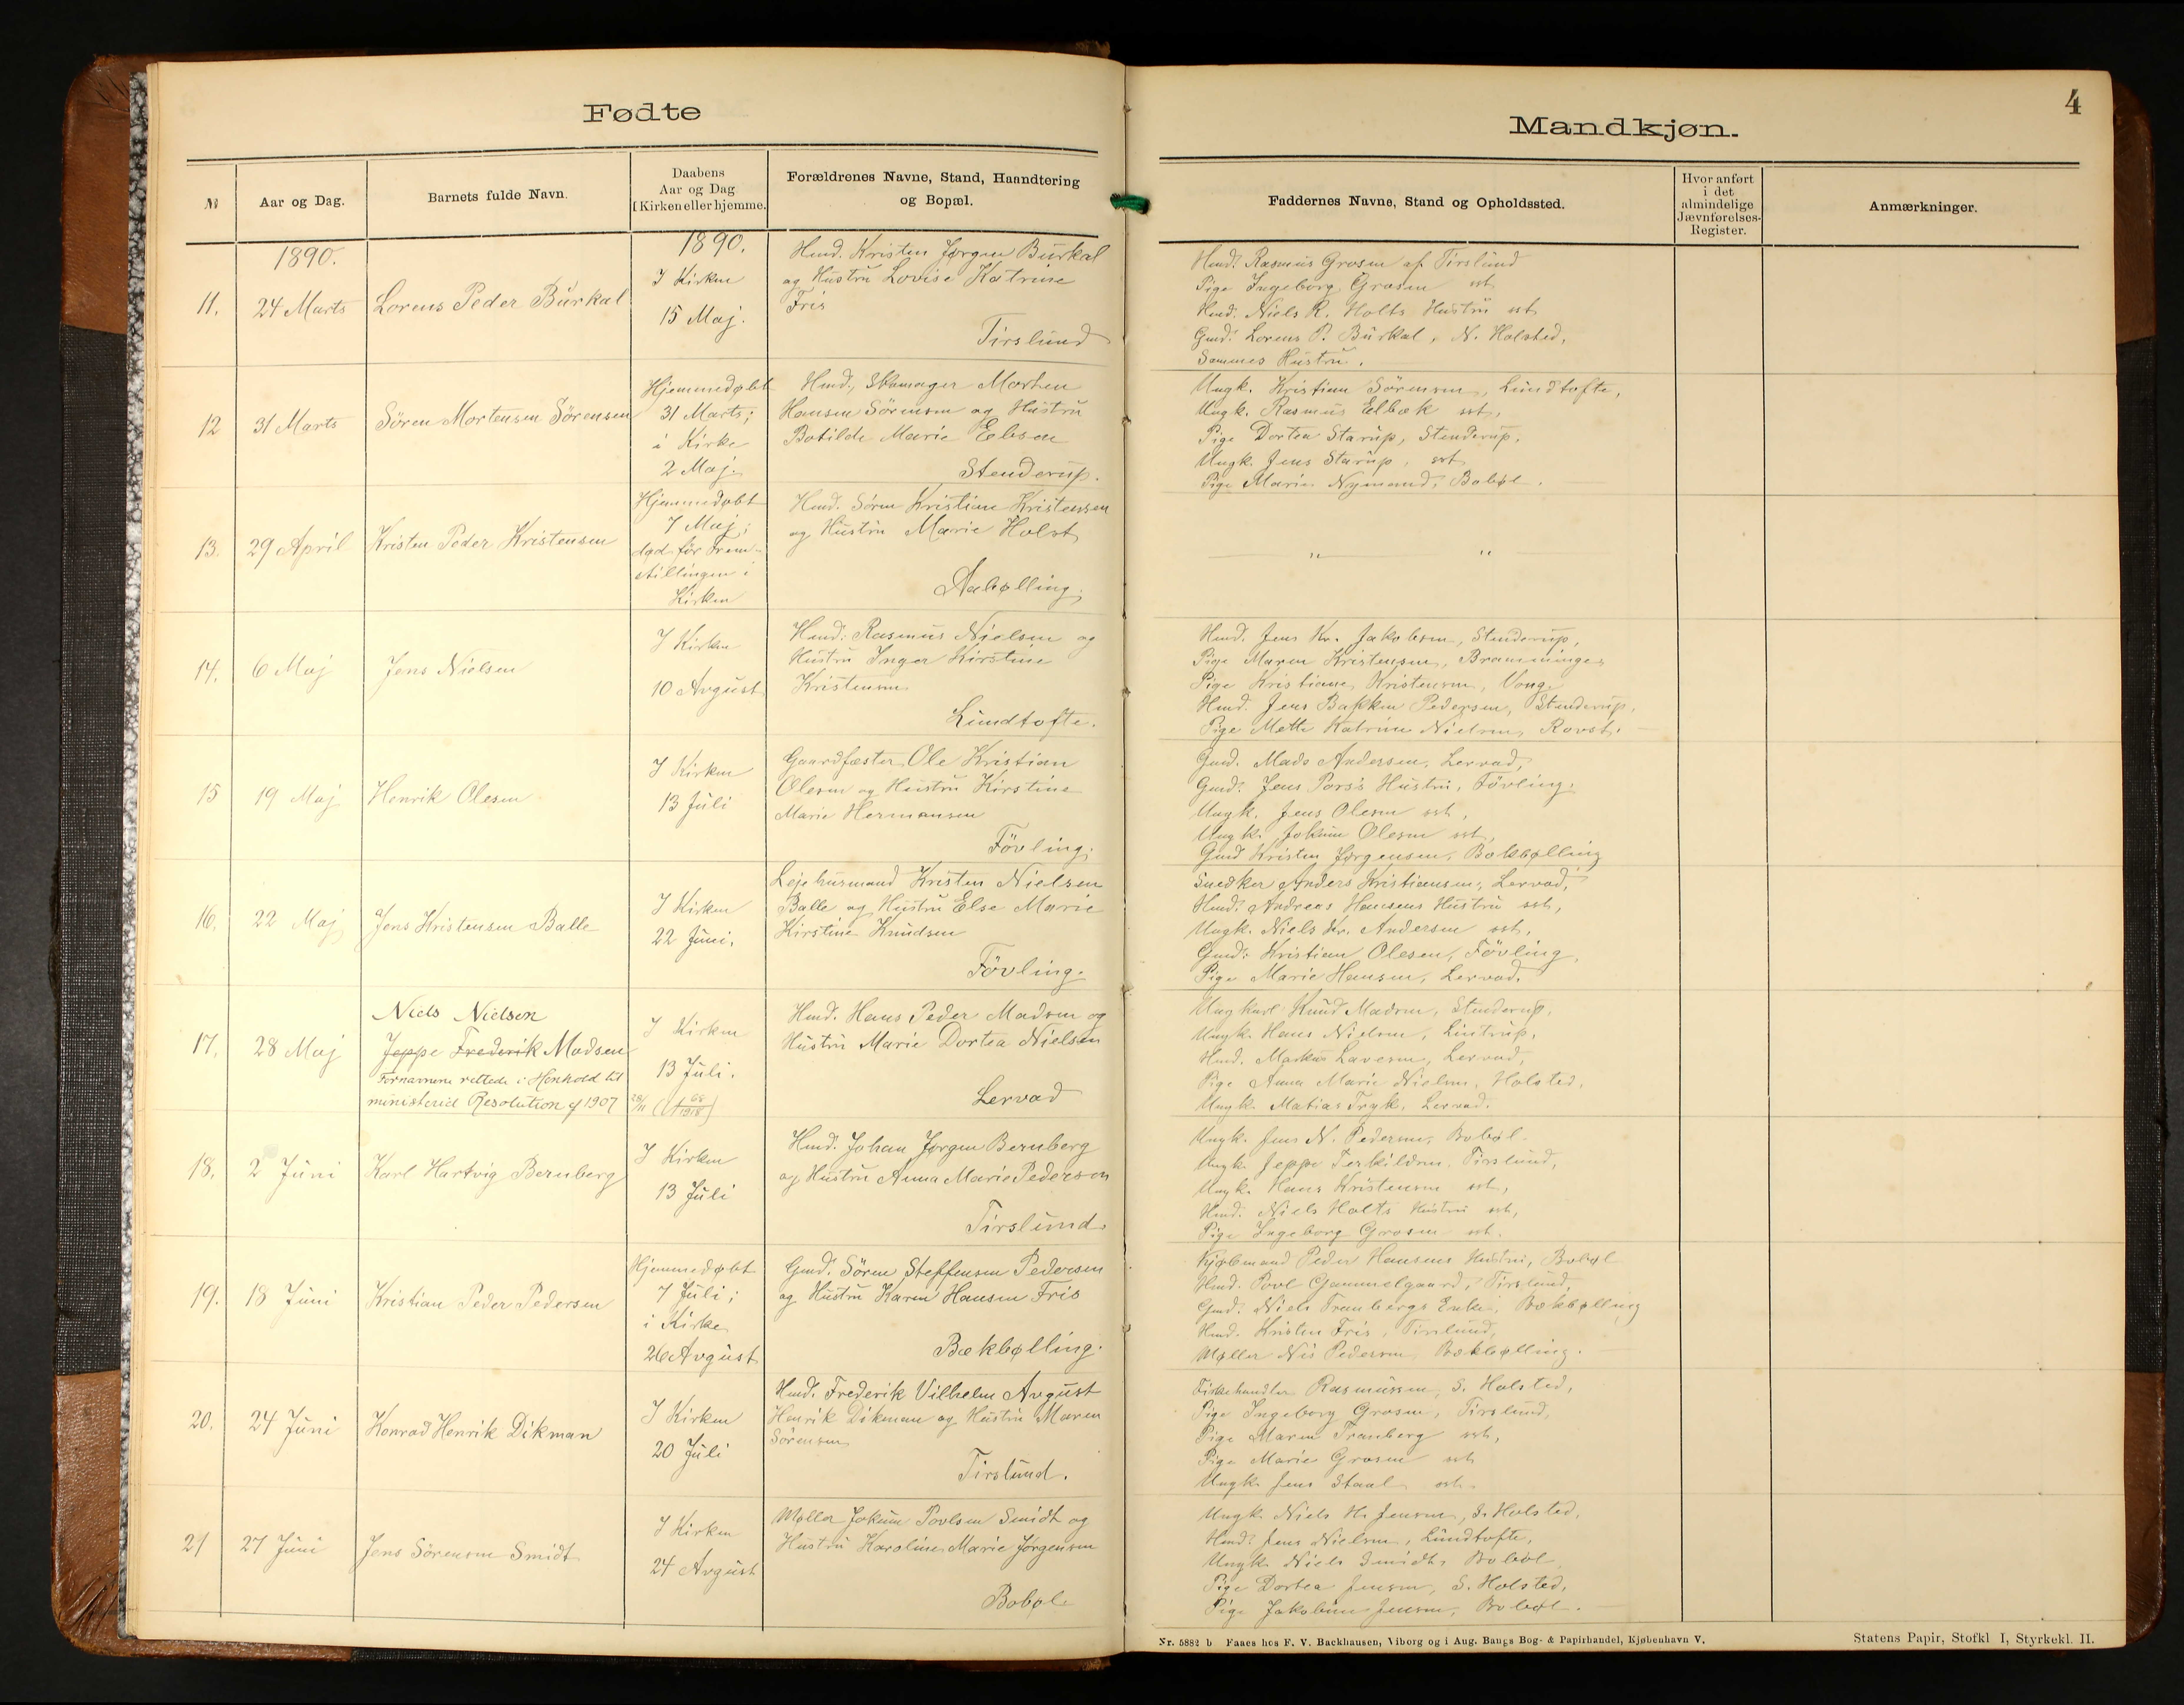 Fødte
№
Aar og Dag.
Barnets fulde Navn.
Daabens
Aar og Dag
I Kirken eller hjemme.
Forældrenes Navne, Stand, Haandtering
og Bopæl.
1890.
1890.
11.
24 Marts
Lorens Peder Burkal
I Kirken
15 Maj.
Hmd. Kristen Jørgen Burkal
og Hustru Lovise Katrine
Fris
Tirslund
12
31 Marts
Sören Mortensen Sörensen
Hjemmedøbt
31 Marts;
i Kirke
2 Maj.
Hmd., Skomager Morten
Hansen Sörensen og Hustru
Botilde Marie Ebsen
Stenderup.
13.
29 April
Kristen Peder Kristensen
Hjemmedøbt
7 Maj;
död för Frem-
stillingen i
Kirken
Hmd. Sören Kristian Kristensen
og Hustru Marie Holst
Aabølling.
14.
6 Maj
Jens Nielsen
I Kirken
10 Avgust
Hmd. Rasmus Nielsen og
Hustru Inger Kirstine
Kristensen
Lundtofte.
15
19 Maj
Henrik Olesen
I Kirken
13 Juli
Gaardfæster Ole Kristian
Olesen og Hustru Kirstine
Marie Hermansen
Fövling.
16.
22 Maj
Jens Kristensen Balle
I Kirken
22 Juni.
Lejehusmand Kristen Nielsen
Balle og Hustru Else Marie
Kirstine Knudsen
Fövling.
17.
28 Maj
Niels Nielsen
Jeppe Frederik Madsen
Fornavnene rettede i Henhold til
ministeriel Resolution af 1907 28/11 (A 68/1918)
I Kirken
13 Juli.
Hmd. Hans Peder Madsen og
Hustru Marie Dortea Nielsen
Lervad
18.
2 Juni
Karl Hartvig Bernberg
I Kirken
13 Juli
Hmd. Johan Jørgen Bernberg
og Hustru Anna Marie Pedersen
Tirslund.
19.
18 Juni
Kristian Peder Pedersen
Hjemmedøbt
7 Juli;
i Kirke
26 Avgust
Gmd. Sören Steffensen Pedersen
og Hustru Karen Hansen Fris
Bækbølling.
20.
24 Juni
Konrad Henrik Dikman
I Kirken
20 Juli
Hmd. Frederik Vilhelm Avgust
Henrik Dikman og Hustru Maren
Sörensen
Tirslund.
21
27 Juni
Jens Sörensen Smidt
I Kirken
24 Avgust
Møller Jokum Povlsen Smidt og
Hustru Karoline Marie Jørgensen
Bobøl
Mandkjøn.
4
Faddernes Navne, Stand og Opholdssted.
Hvor anført
i det
almindelige
Jævnførelses-
Register.
Anmærkninger.
Hmd. Rasmus Grosen af Tirslund
Pige Ingeborg Grosen sst
Hmd. Niels R. Holts Hustru sst
Gmd. Lorens P. Burkal, N. Holsted,
Sammes Hustru.
Ungk. Kristian Sörensen, Lundtofte,
Ungk. Rasmus Elbæk sst,
Pige Dortea Starup, Stenderup,
Ungk. Jens Starup, sst
Pige Marie Nymand, Bobøl.
" "
Hmd. Jens Kr. Jakobsen, Stenderup,
Pige Maren Kristensen, Bramminge,
Pige Kristiane Kristensen, Vong.
Hmd. Jens Bakken Pedersen, Stenderup,
Pige Mette Katrine Nielsen, Rovst.
Gmd. Mads Andersen, Lervad,
Gmd. Jens Pors's Hustru, Fövling,
Ungk. Jens Olesen sst,
Ungk. Jokum Olesen sst,
Gmd Kristen Jørgensen, Bækbølling
Snedker Anders Kristiansen, Lervad,
Hmd. Andreas Hansens Hustru sst,
Ungk. Niels Kr. Andersen sst,
Gmd. Kristian Olesen, Fövling,
Pige Marie Hansen, Lervad.
Ungkarl Knud Madsen, Stenderup,
Ungk. Hans Nielsen, Lintrup,
Hmd. Markus Lavesen, Lervad,
Pige Anna Marie Nielsen, Holsted,
Ungk. Matias Tryk, Lervad.
Ungk. Jens N. Pedersen, Bobøl
Ungk. Jeppe Terkildsen, Tirslund,
Ungk. Hans Kristensen sst,
Hmd. Niels Holts Hustru sst,
Pige Ingeborg Grosen sst.
Kjøbmand Peder Hansens Hustru, Bobøl
Hmd. Povl Gammelgaard, Tirslund,
Gmd. Niels Tranbergs Enke, Bækbølling
Hmd. Kristen Fris, Tirslund,
Møller Nis Pedersen, Bækbølling.
Fiskehandler Rasmussen, S. Holsted,
Pige Ingeborg Grosen, Tirslund,
Pige Maren Tranberg sst,
Pige Marie Grosen sst
Ungk. Jens Staal sst.
Ungk. Niels H. Jensen, S. Holsted,
Hmd. Jens Nielsen, Lundtofte,
Ungk. Niels Smidt, Bobøl
Pige Dortea Jensen, S. Holsted,
Pige Jakobine Jensen, Bobøl.
Nr. 5882 b Faaes hos F. V. Backhausen, Viborg og i Aug. Bangs Bog- & Papirhandel, Kjøbenhavn V.
Statens Papir, Stofkl I, Styrkekl. II.